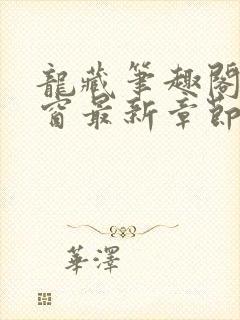 龍藏筆趣閣
窗最新章節
華澤